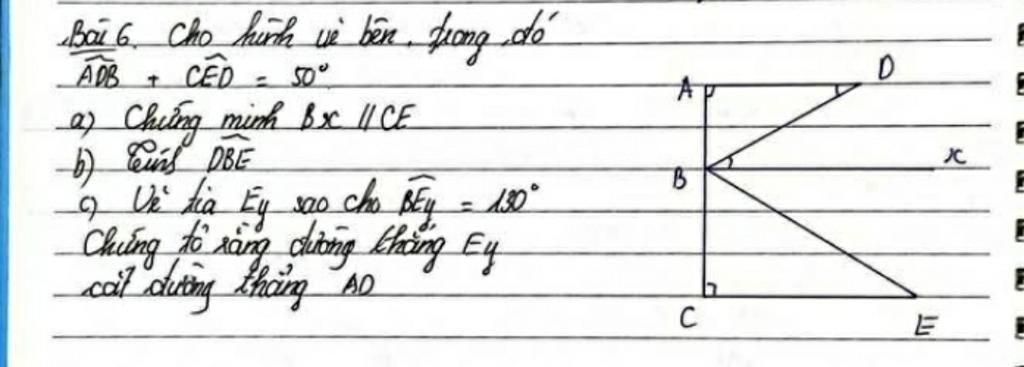 Bài 6. Cho hình vẽ bên, trong đó
ADB + CED = 50°
a) Chứng minh Bx // CE
b) Tính DBE
c) Vẽ tia Ey sao cho BEy = 130°
Chứng tỏ rằng đường thẳng Ey
cắt đường thẳng AD
A
D
B
x
C
E